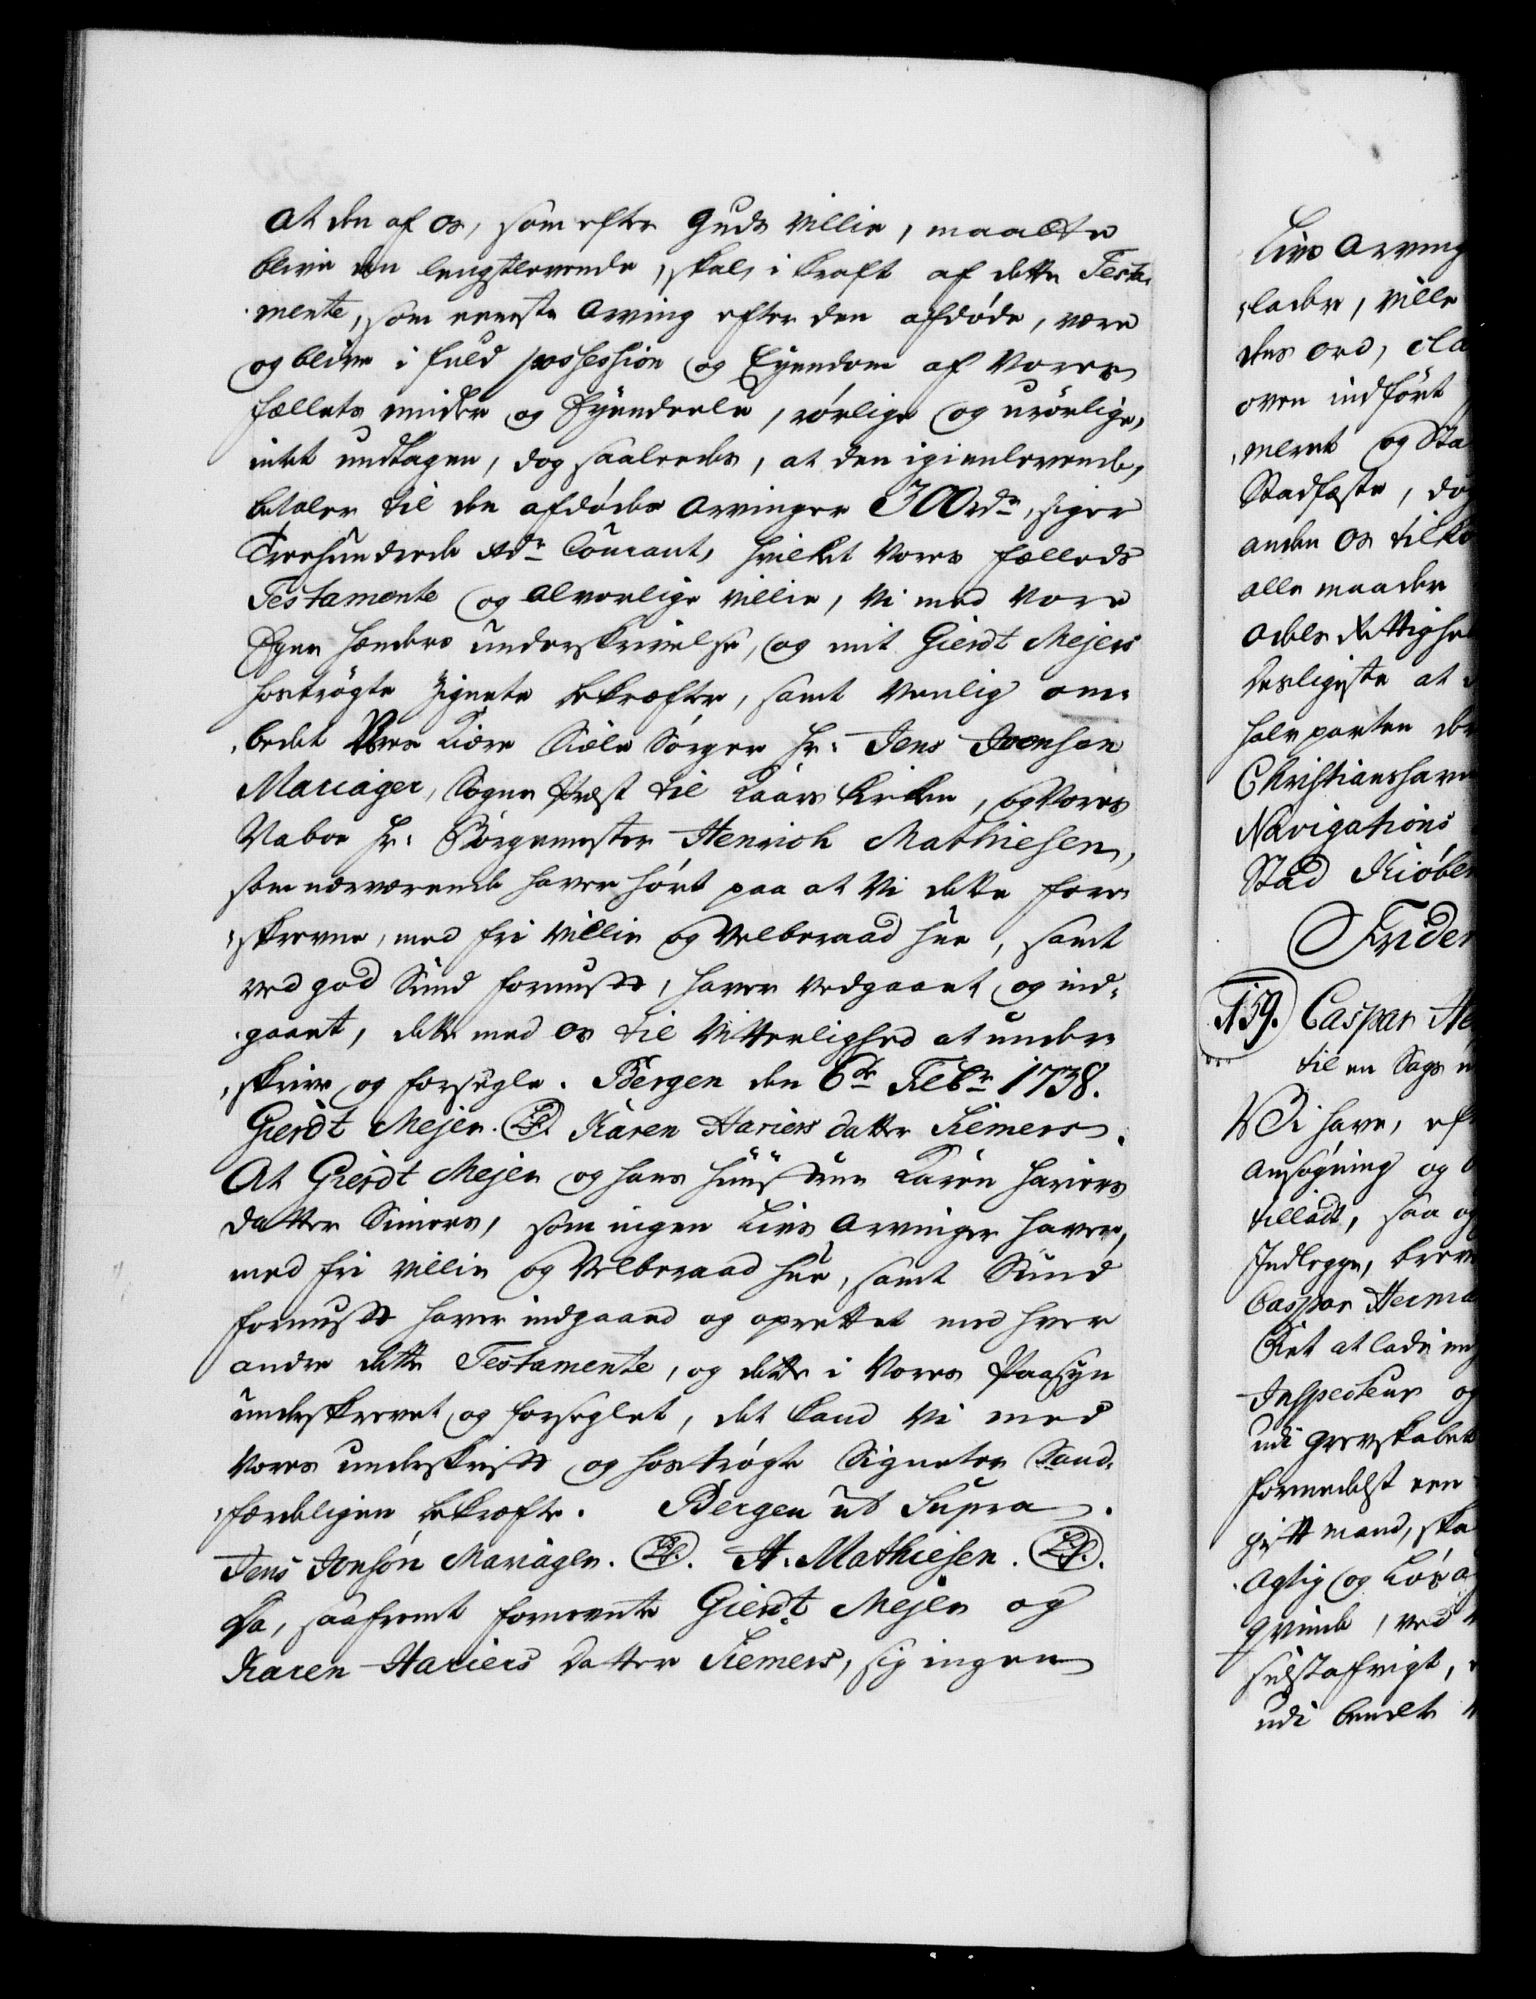 at den af os, som efter Guds Villie, maatte
blive den lengstlevende, skal, i kraft af dette Testa-
mente, som eeneste Arving efter den afdøde, være
og blive i fuld possession og Eyendom af Vores
fællets midler og Eyendeele, rørlige og urørlige,
intet undtagen, dog saaledes, at den igienlevende,
betaler til den afdødes Arvinger 300 rdr, siger
Treehundrede rdr Courant, hvilket Vores fælleds
Testamente og alvorlige Villie, Vi med Vore
Egne hænders underskrivelse, og mit Gierdt Mejers
hostrøgte Zignete bekræfter, samt venlig om-
bedet Vores kiære Siæle Sørger Hr: Jens Joensen
Mariager, Sogne Præst til Kaars Kirken, og Vores
Naboe Hr: Borgemester Henrich Mathiesen,
som nærværende haver hørt paa at Vi dette fore-
skrevne, med fri Villie og Velberaad hue, samt
ved god Sund fornufft, haver vedgaaet og ind-
gaaet, dette med os til Vitterlighed at under-
skrive og forsegle. Bergen den 6te Febr 1738.
Gierdt Mejer. (L.S.) Karen Hariers datter Siemers.
At Gierdt Mejer og hans Huustrue Karen Hariers
datter Simers, som ingen Livs Arvinger haver,
med fri Villie og Velberaad hue, samt Sund
fornufft haver indgaaed og oprettet med hver
andre dette Testamente, og dette i Vores Paasyn
underskrevet og forseglet, det kand Vi med
Vores underskrifft og hostrøgte Signeter Sand-
færdeligen bekræfte. Bergen ut Supra.
Jens Jonsøn Mariager. (L.S.). H. Mathiesen. (L.S.).
Da, saafremt fornevnte Gierdt Mejer og
Karen Hariers datter Siemers, sig ingen
Livs Arving
lader, ville
des ord,
oven indført
ment og Sta
Stadfæste, dog
anden os tilko
alle maader
Adels Rettighe
desligeste at
halvparten der
Christianshavn
Navigations
Stad Kiøben
Frider
159. Caspar He
til en Sags
Vi have, eft
ansøgning og
tilladt, saa og
Indlegge, breve
Caspar Herma
Ret at lade
Inspecteur og
udi Grevskabet
formedelst een
gift mand, ska
Agtig og Løs
qvinde, ved
udi